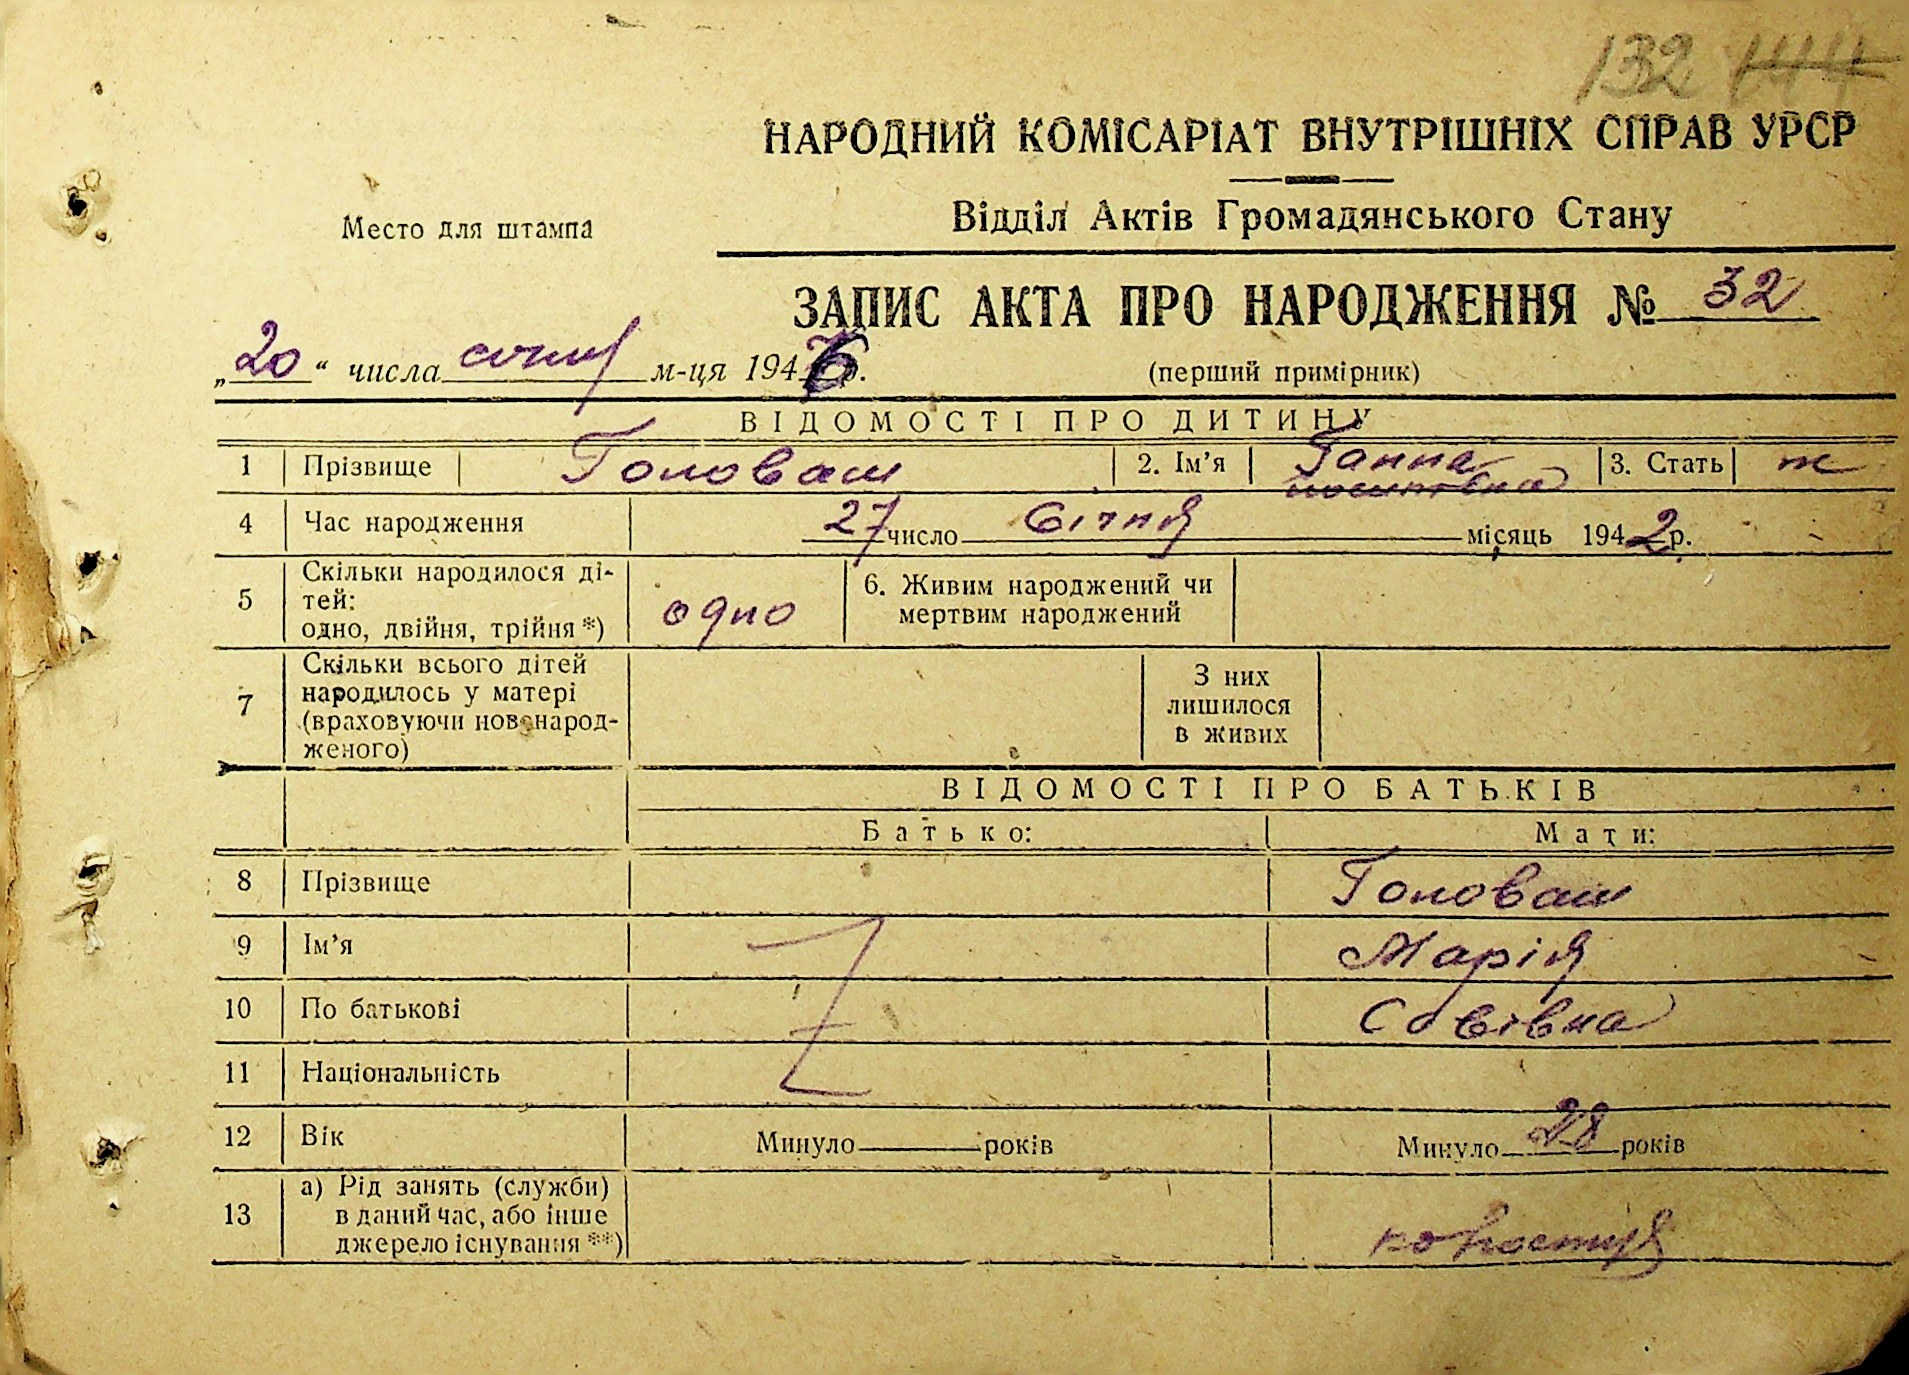 132 144
НАРОДНИЙ КОМІСАРІАТ ВНУТРІШНІХ СПРАВ УРСР
Место для штампа
Відділ Актів Громадянського Стану
ЗАПИС АКТА ПРО НАРОДЖЕННЯ № 32
„20“ числа січня м-ця 1946 р.
(перший примірник)
ВІДОМОСТІ ПРО ДИТИНУ
1 Прізвище Головаш 2. Ім’я Ганна 3. Стать ж
4 Час народження 27 число Січня місяць 1942 р.
5 Скільки народилося ді-
тей:
одно, двійня, трійня *) одно 6. Живим народжений чи
мертвим народжений
7 Скільки всього дітей
народилось у матері
(враховуючи новонарод-
женого)
З них
лишилося
в живих
ВІДОМОСТІ ПРО БАТЬКІВ
Батько: Мати:
8 Прізвище Головаш
9 Ім’я Марія
10 По батькові Савівна
11 Національність
12 Вік Минуло років Минуло 28 років
13 а) Рід занять (служби)
в даний час, або інше
джерело існування **)